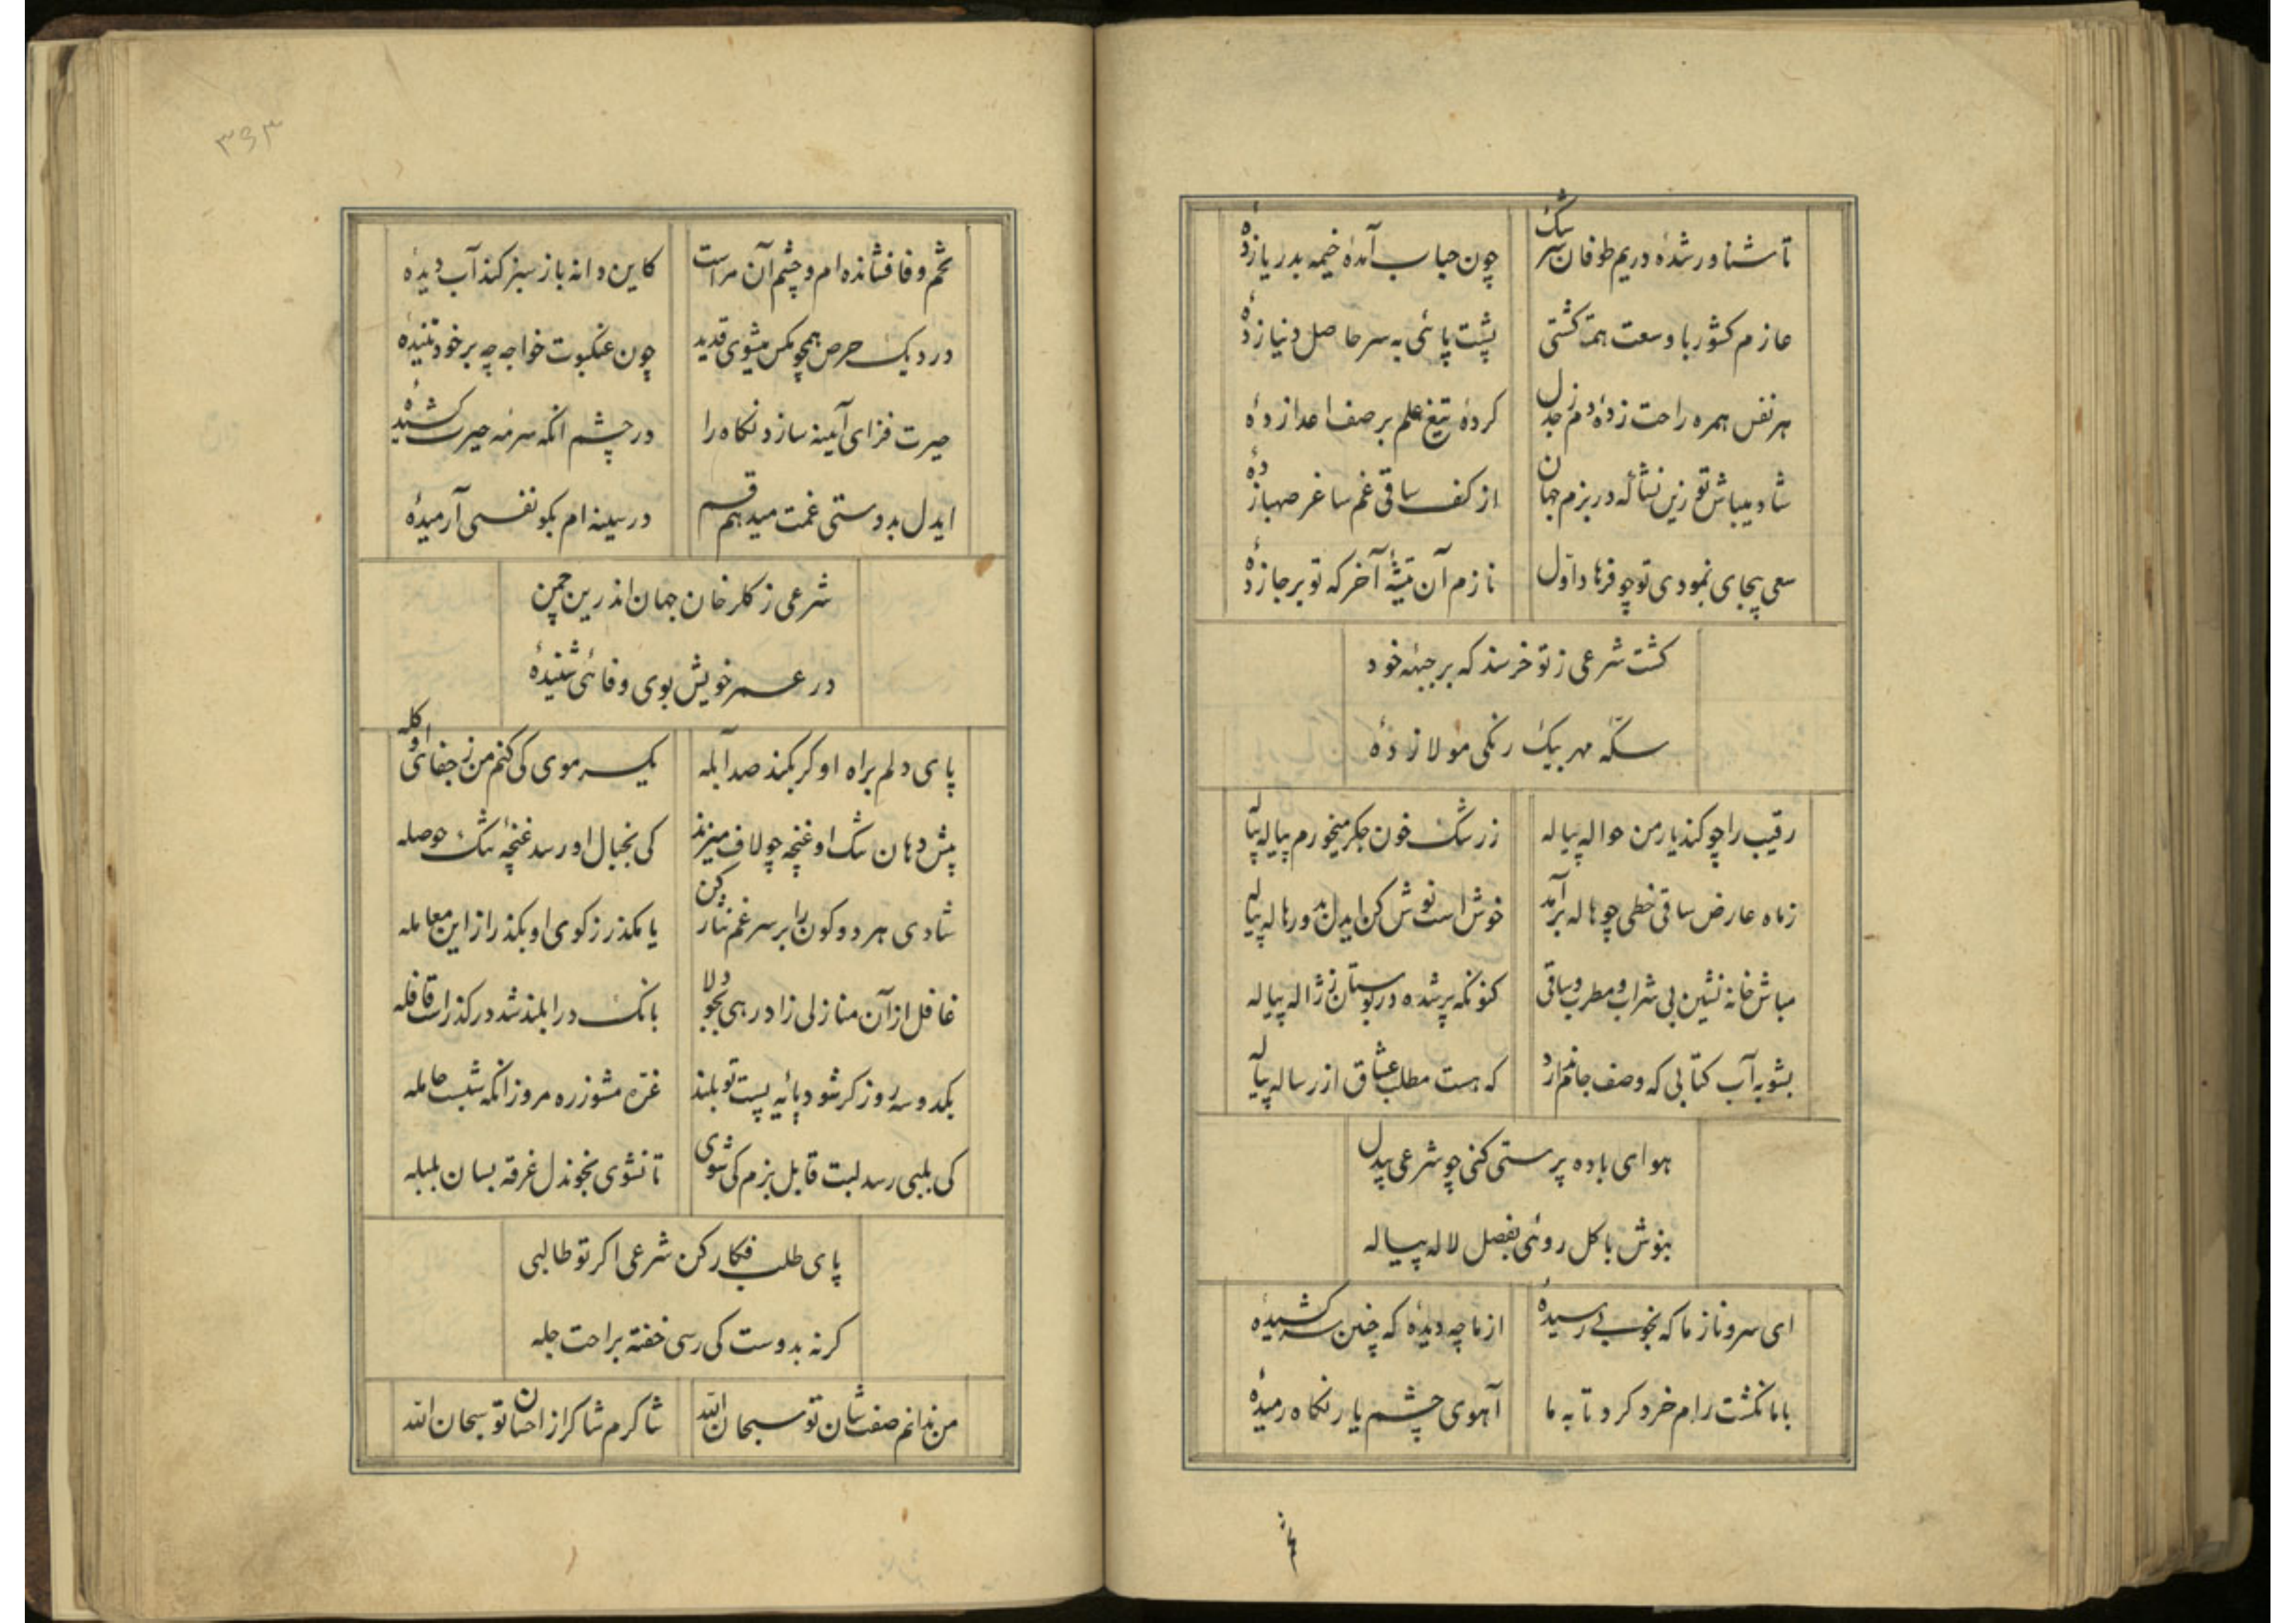 تا شناور شدهٔ در یم طوفان سرشک
چون حباب آمدهٔ خیمه بدریا زدهٔ
عازم کشور با وسعت همت کشتی
پشت پائی به سر حاصل دنیا زدهٔ
هر نفس همره راحت زدهٔ دم ز جدل
کردهٔ تیغ علم بر صف اعدا زدهٔ
شاد میباش تو زین نشأه که در بزم جهان
از کف ساقی غم ساغر صهبا زدهٔ
سعی بیجای نمودی تو چو فرهاد اول
نازم آن تیشهٔ آخر که تو برجا زدهٔ
کشت شرعی ز تو خرسند که بر جبهه خود
سکّه مهر بیک رنکی مولا زدهٔ
رقیب را چو کند یار من حواله پیاله
ز رشک خون جکر میخورم پیاله پیاله
ز ماه عارض ساقی خطی چو هاله برآمد
خوش است نوش کن ایدل بدور هاله پیاله
مباش خانه نشین بی شراب و مطرب و ساقی
کنونکه پر شده در بوستان ز ژاله پیاله
بشو به آب کتابی که وصف جام ندارد
که هست مطلب عشاق از رساله پیاله
هوای باده پرستی کنی چو شرعی بیدل
بنوش با کل روئی بفصل لاله پیاله
ای سرو ناز ما که بخوبی رسیدهٔ
از ما چه دیدهٔ که چنین سر کشیدهٔ
با ما نکشت رام خرد کرد تا به ما
آهوی چشم یار نکاه رمیدهٔ
تخم
۳۹۳
تخم وفا فشانده ام و چشم آن مراست
کاین دانه باز سبز کند آب دیدهٔ
در دیک حرص همچو مکس میشوی قدید
چون عنکبوت خواجه چه بر خود تنیدهٔ
حیرت فزای آینه سازد نکاه را
در چشم انکه سرمه حیرت کشیدهٔ
ایدل بدوستی غمت میدهم قسم
در سینه ام بکو نفسی آرمیدهٔ
شرعی ز کلرخان جهان اندرین چمن
در عمر خویش بوی وفائی شنیدهٔ
پای دلم براه او کر بکند صد آبله
یکسر موی کی کنم من ز جفای او کله
پیش دهان تنک او غنچه چو لاف میزند
کی بخیال او رسد غنچه تنک حوصله
شادی هر دو کون را بر سر غم نثار کن
یا مکذر ز کوی او بکذر از این معامله
غافل از آن منازلی زاد رهی بجو دلا
بانک درا بلند شد در کذر است قافله
یکدو سه روز کر شود پایه پست تو بلند
غرّه مشو ز ره مرو زانکه شبست حامله
کی بلبی رسد لبت قابل بزم کی شوی
تا نشوی بخون دل غرقه بسان بلبله
پای طلب فکار کن شرعی اکر تو طالبی
کر نه بدوست کی رسی خفته براحت جله
من ندانم صفت شان تو سبحان الله
شاکرم شاکر از احسان تو سبحان الله